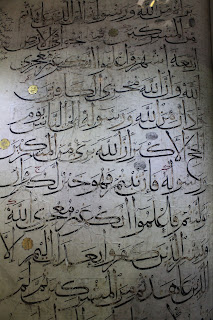 من الله ورسوله الى الذين
من المشركين فسيحوا في الارض
اربعة اشهر واعلموا انكم غير معجزي
الله وان الله مخزي الكافرين و
اذان من الله ورسوله الى الناس يوم
الحج الاكبر ان الله بريء من المشركين
ورسوله فان تبتم فهو خير لكم وان
توليتم فاعلموا انكم غير معجزي الله
وبشر الذين كفروا بعذاب اليم الا
الذين عاهدتم من المشركين ثم لم